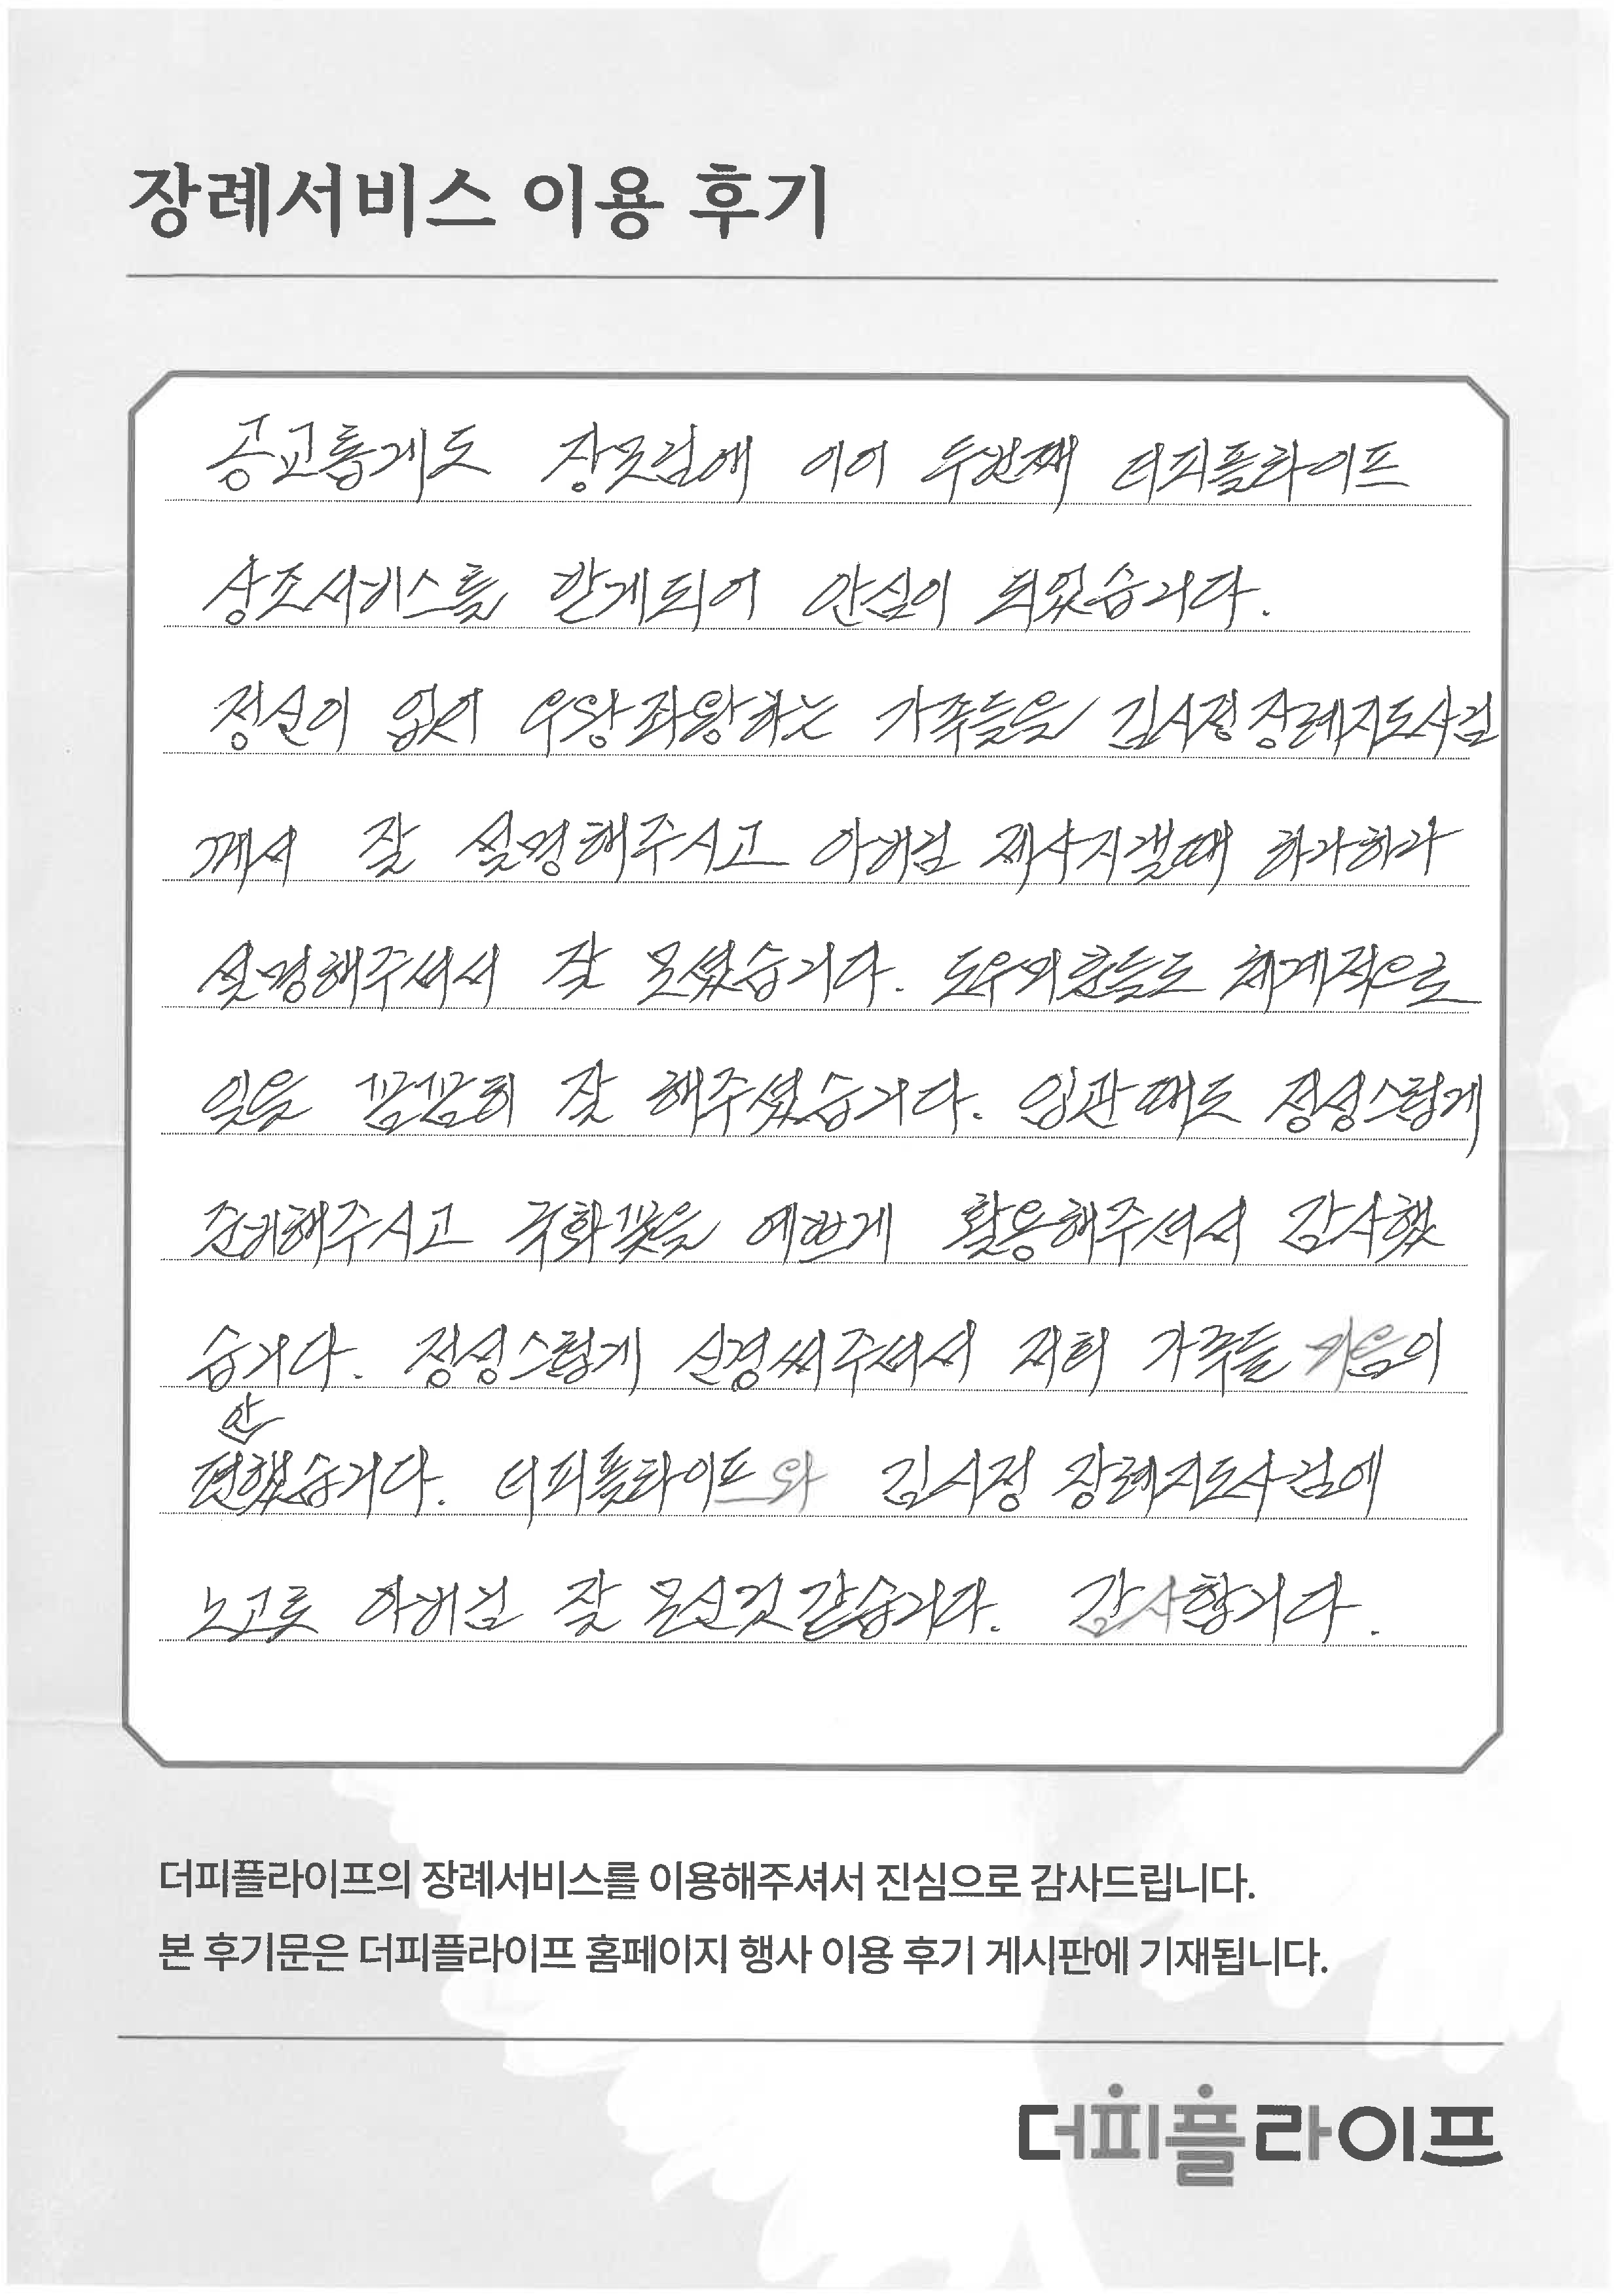 장례서비스 이용 후기
공교롭게도 장모님에 이어 두번째 더피플라이프
상조서비스를 받게되어 안심이 되었습니다.
정신이 없이 우왕좌왕하는 가족들을 김시정장례지도사님
께서 잘 설명해주시고 아버님 제사지낼때 하나하나
설명해주셔서 잘 모셨습니다. 도우미분들도 체계적으로
일을 꼼꼼히 잘 해주셨습니다. 입관때도 정성스럽게
준비해주시고 국화꽃을 예쁘게 활용해주셔서 감사했
습니다. 정성스럽게 신경써주셔서 저희 가족들 마음이
안
편했습니다. 더피플라이프와 김시정 장례지도사님에
노고로 아버님 잘 모신것같습니다. 감사합니다.
더피플라이프의 장례서비스를 이용해주셔서 진심으로 감사드립니다.
본 후기문은 더피플라이프 홈페이지 행사 이용 후기 게시판에 기재됩니다.
더피플라이프